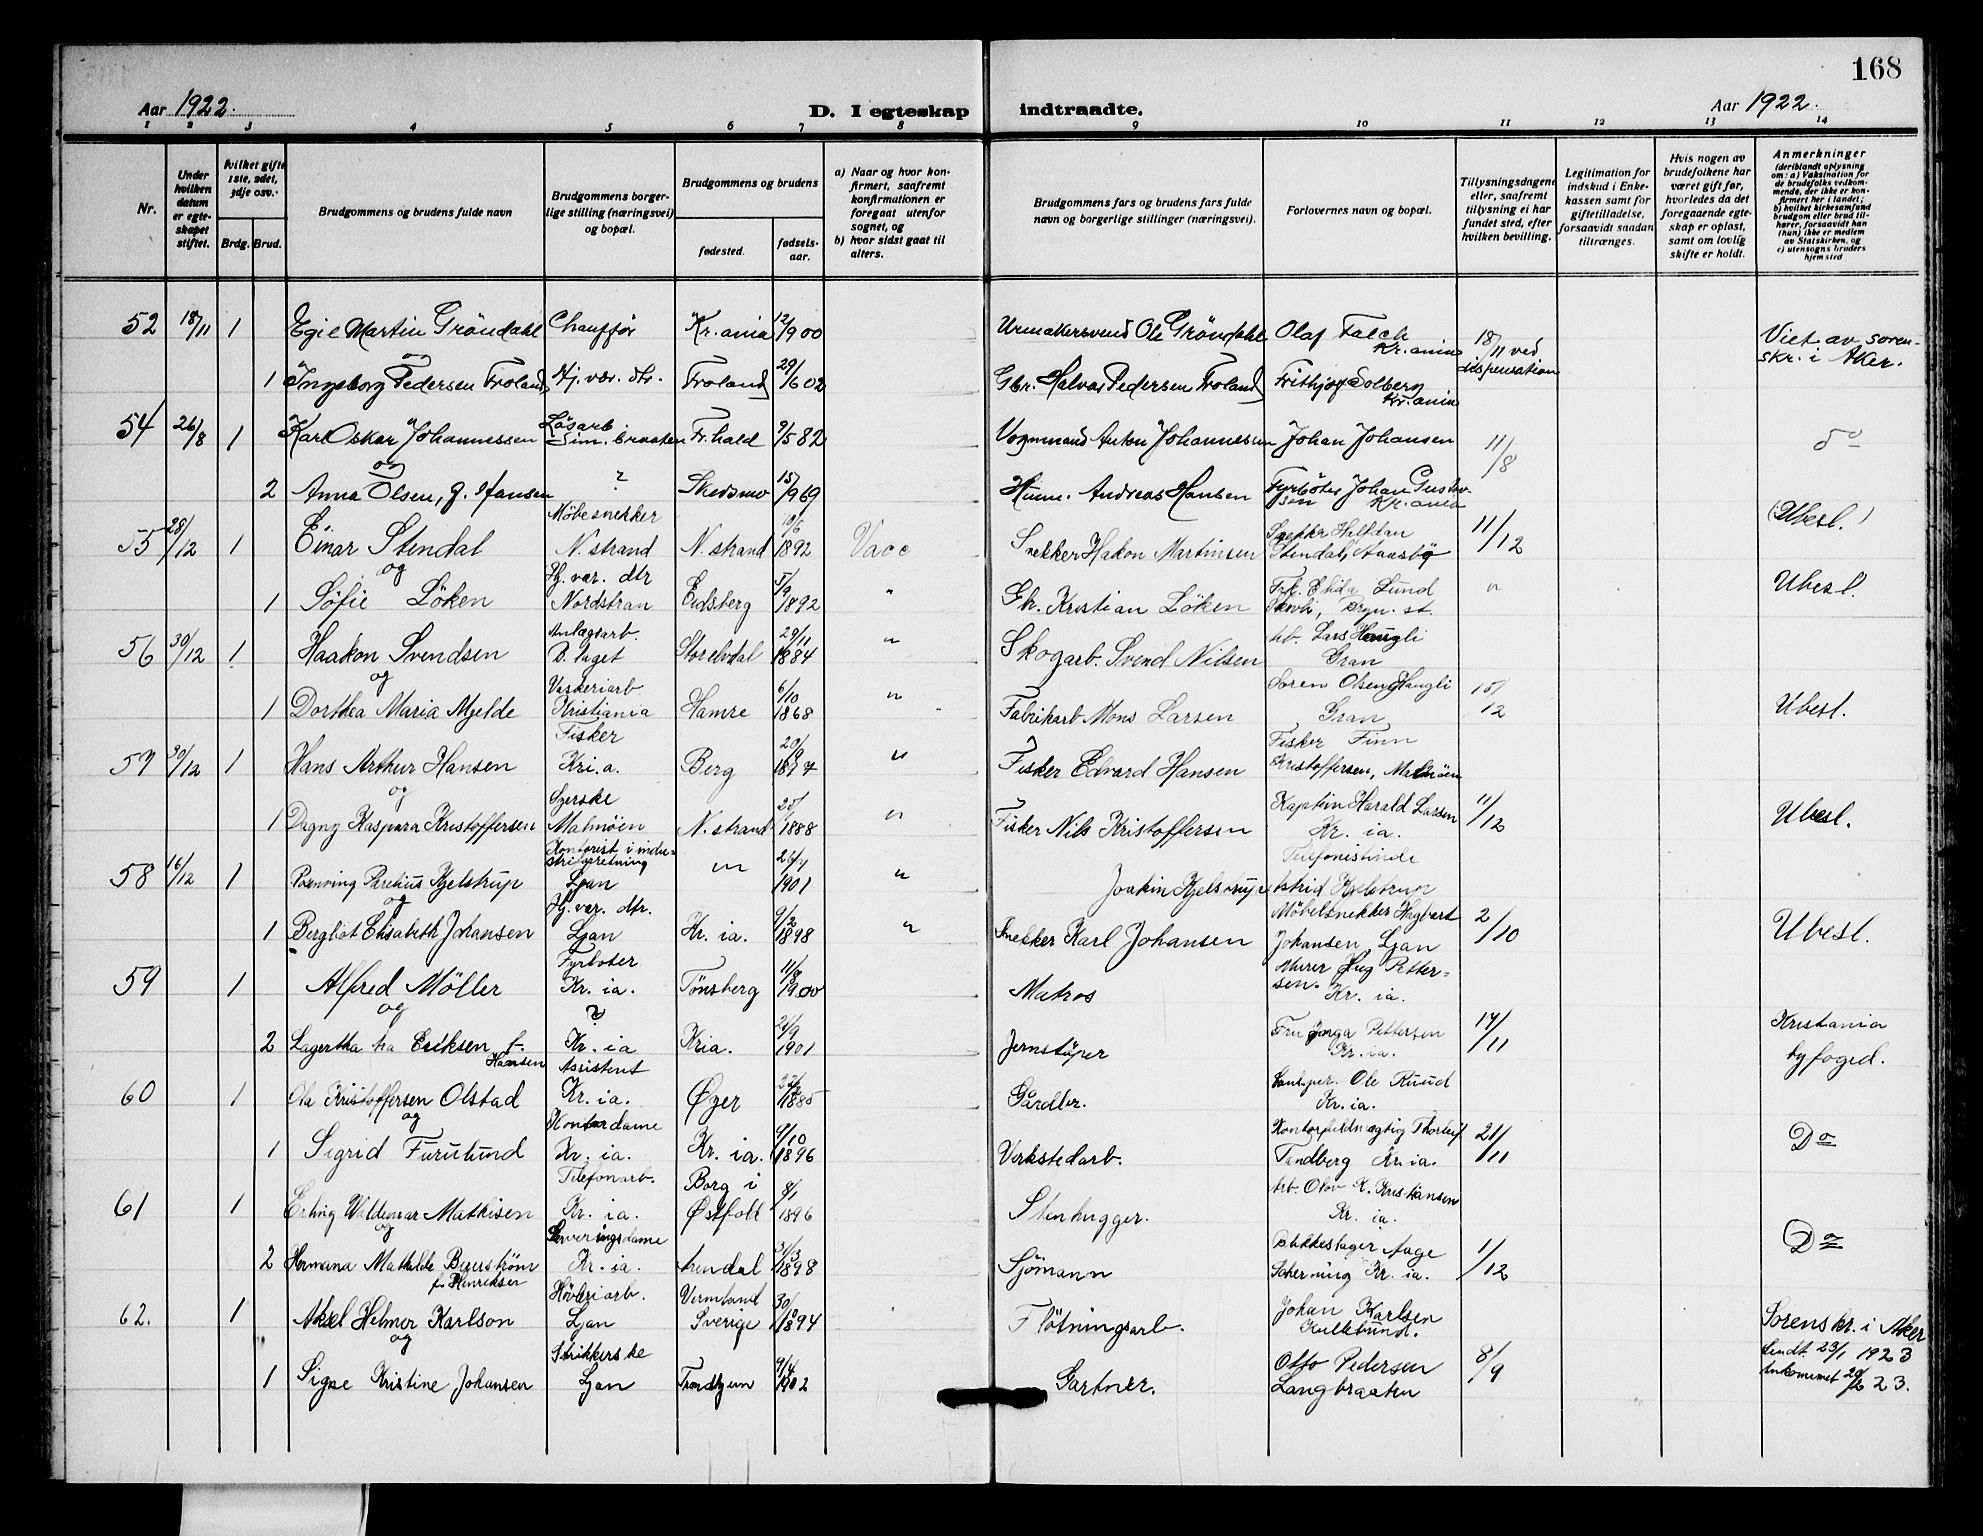 168
Aar 1922.
D. I egteskap indtraadte.
Aar 1922.
1 2 3 4 5 6 7 8 9 10 11 12 13 14
Nr.
Under hvilken datum er egteskapet stiftet.
Hvilket gifte 1ste, 2det, 3dje osv.
Brdg. Brud.
Brudgommens og brudens fulde navn
Brudgommens borgerlige stilling (næringsvei) og bopæl.
Brudgommens og brudens
fødested.
fødselsaar.
a) Naar og hvor konfirmert, saafremt konfirmationen er foregaat utenfor sognet, og
b) hvor sidst gaat til alters.
Brudgommens fars og brudens fars fulde navn og borgerlige stillinger (næringsvei).
Forlovernes navn og bopæl.
Tillysningsdagene eller, saafremt tillysning ei har fundet sted, efter hvilken bevilling.
Legitimation for indskud i Enkekassen samt for giftetilladelse, forsaavidt saadan tiltrænges.
Hvis nogen av brudefolkene har været gift før, hvorledes da det foregaaende egteskap er opløst, samt om lovlig skifte er holdt.
Anmerkninger (deriblandt oplysning om: a) Vaksination for de brudefolks vedkommende, der ikke er konfirmert her i landet; b) hvilket kirkesamfund brudgom eller brud tilhører, forsaavidt han (hun) ikke er medlem av Statskirken, og c) utensogns bruders hjemsted
52 18/11 1 Egil Martin Gröndahl Chauffør Kr.ania 12/900 Urmakersvend Ole Gröndahl Olaf Falch Kr.ania 18/11 ved dispensation Viet av sorenskr. i Aker.
og
1 Ingeborg Pedersen Froland Hj. vær. dtr. Froland 29/602 Gbr. Halvor Pedersen Froland Frithjof Solberg Kr.ania
54 26/8 1 Karl Oskar Johannessen Løsarb Sim. braaten Fr.hald 9/582 Vognmand Anton Johannessen Johan Johansen 11/8 do
og
2 Anna Olsen, f. Hansen ? Skedsmo 15/969 Husm. Andreas Hansen Fyrböter Johan Gustavsen Kr.ania
55 28/12 1 Einar Stendal Møbesnekker N.strand N.strand 10/6 1892 Vacc Snekker Hakon Martinsen Snekker Halfdan Stendal, Aaasbø 11/12 (Ubesl.)
og
1 Søfie Löken Hj. var. dtr Nordstran Eidsberg 5/9 1892 " Gb. Kristian Löken Frk. Lund Skovli, Bryn. st. " Ubesl.
56 30/12 1 Haakon Svendsen Anlægsarb. B. laget Storelvdal 29/11 1884 " Skogarb. Svend Nilsen Arb. Lars Haugli Gran
og
1 Dorthea Maria Mjelde Vaskeriarb. Kristiania Hamre 6/10 1868 " Fabrikarb Mons Larsen Soren Olsen Haugli Gran 15/12 Ubesl.
57 30/12 1 Hans Arthur Hansen Fisker Kri.a. Berg " Fisker Edvard Hansen Fisker Finn Kristoffersen, Malmöen
og
1 Dagny Kaspara Kristoffersen Syerske Malmöen N.strand 1888 " Fisker Nils Kristoffersen Kaptein Harald Larsen Kr. ia. 11/12 Ubesl.
58 16/12 1 Parelius Kjelstrup Kontorist i industriforretning Ljan " 1901 " Joakin Kjelstrup Telefonistinde Astrid Kjelstrup
og
1 Bergliot Elisabeth Johansen Hj. var. dtr. Ljan Kr. ia. 9/2 1898 " Snekker Karl Johansen Möbelsnekker Hagbart Johansen, Ljan 2/10 Ubesl.
59 1 Alfred Möller Fyrboter Kr. ia. Tönsberg 11/8 1900 Matros Murer Pettersen. Kr. ia.
og
2 Lagertha Eriksen f. Hansen ? Kr. ia Kria. 1901 Jernstöper Fru Inga Pettersen Kr.ia. 17/11 Kristania byfoged.
60 1 Ola Kristoffersen Olstad Assistent Kr. ia. Øyer 1885 Gårdbr. Ole Ruud Kr.ia.
og
1 Sigrid Furulund Kontordame Kr. ia. Kr. ia. 9/10 1896 Verkstedarb. Kontorfuldmægtig Thorleif Tandberg Kr.ia. 21/11 Do
61 1 Erling Waldemar Mathisen Telefonarb. Kr. ia. Borg i Østfold 8/1 1896 Stenhugger. Arb. Olov K. Kristiansen Kr. ia.
og
2 Hermana Mathilde Bergström f. Henriksen Serveringsdame Kr. ia. Arendal 31/3 1898 Sjömann Blikkeslager Aage Scherning Kr. ia. 1/12 Do
62. 1 Aksel Helmer Karlson Höveriarb. Ljan Vermland Sverige 1894 Flötningsarb. Johan Karlsen Kullebund. Sorenskr. i Aker
og
1 Signe Kristine Johansen Strikkerske Ljan Trondhjem 9/4 1902 Gartner. Otto Pedersen Langbraaten 8/9 Sendt 23/1 1923 Ankommet 20/2 23.